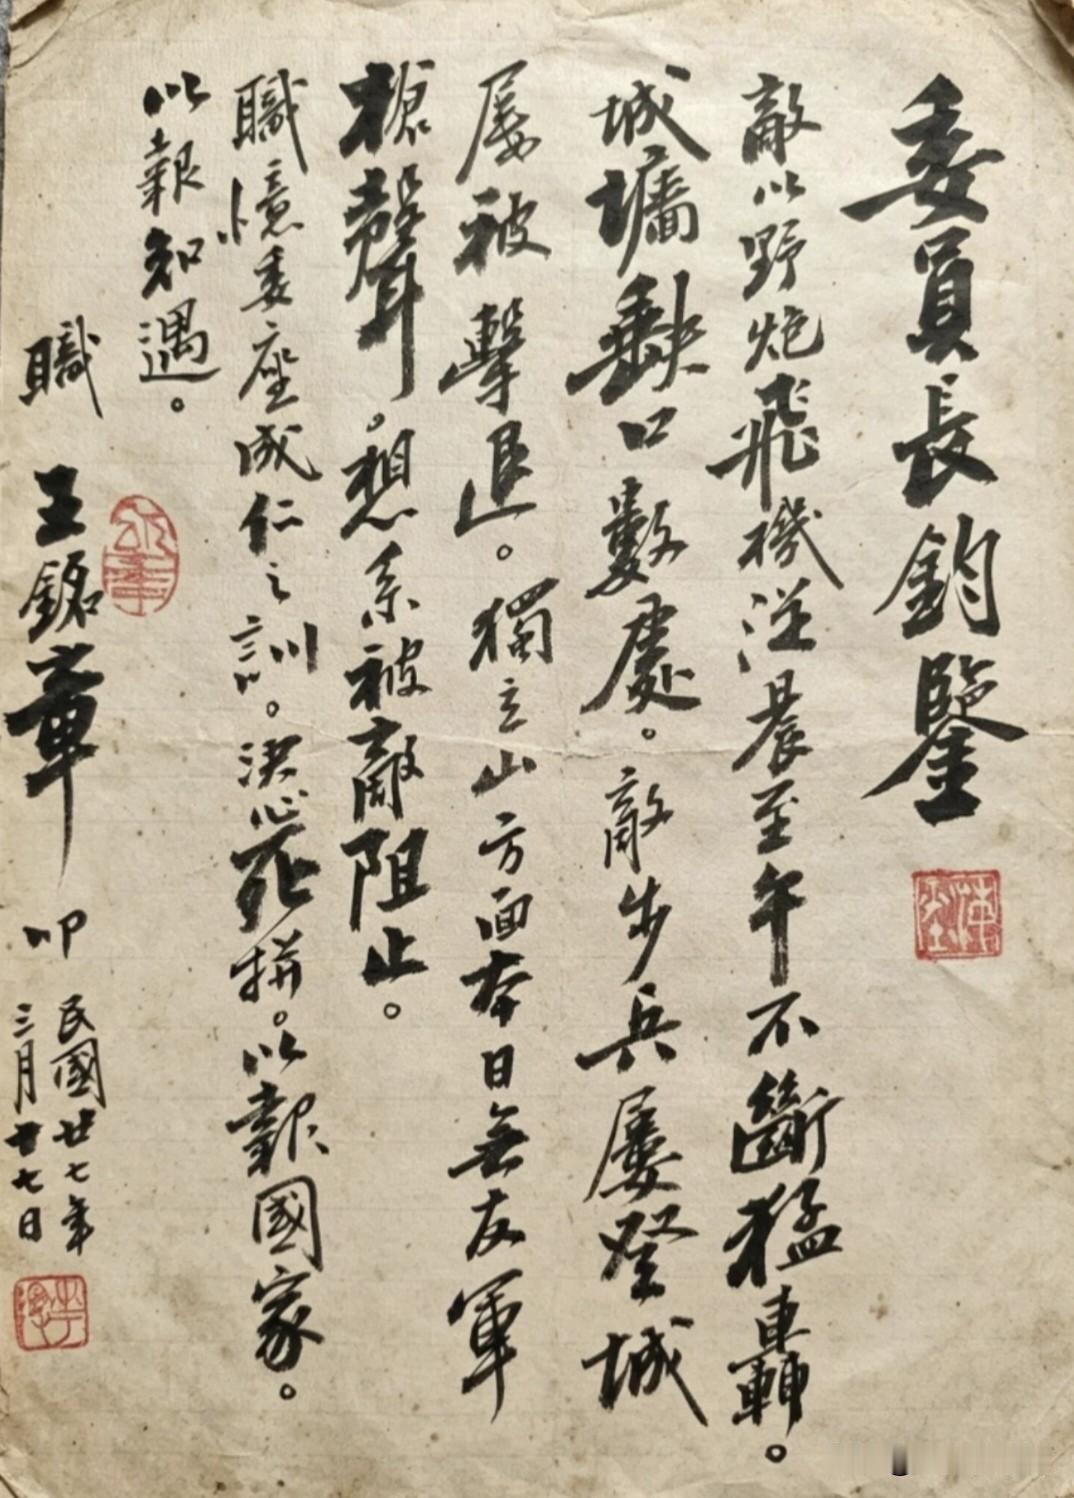 委員長鈞鑒
敵以野炮飛機從晨至午不斷猛轟。
城墻缺口數處。敵步兵屢登城
屢被擊退。獨立山方面本日無友軍
槍聲。想系被敵阻止。
職憶委座成仁之訓。決心死拼。以報國家。
以報知遇。
職 王銘章 叩
民國廿七年
三月廿七日